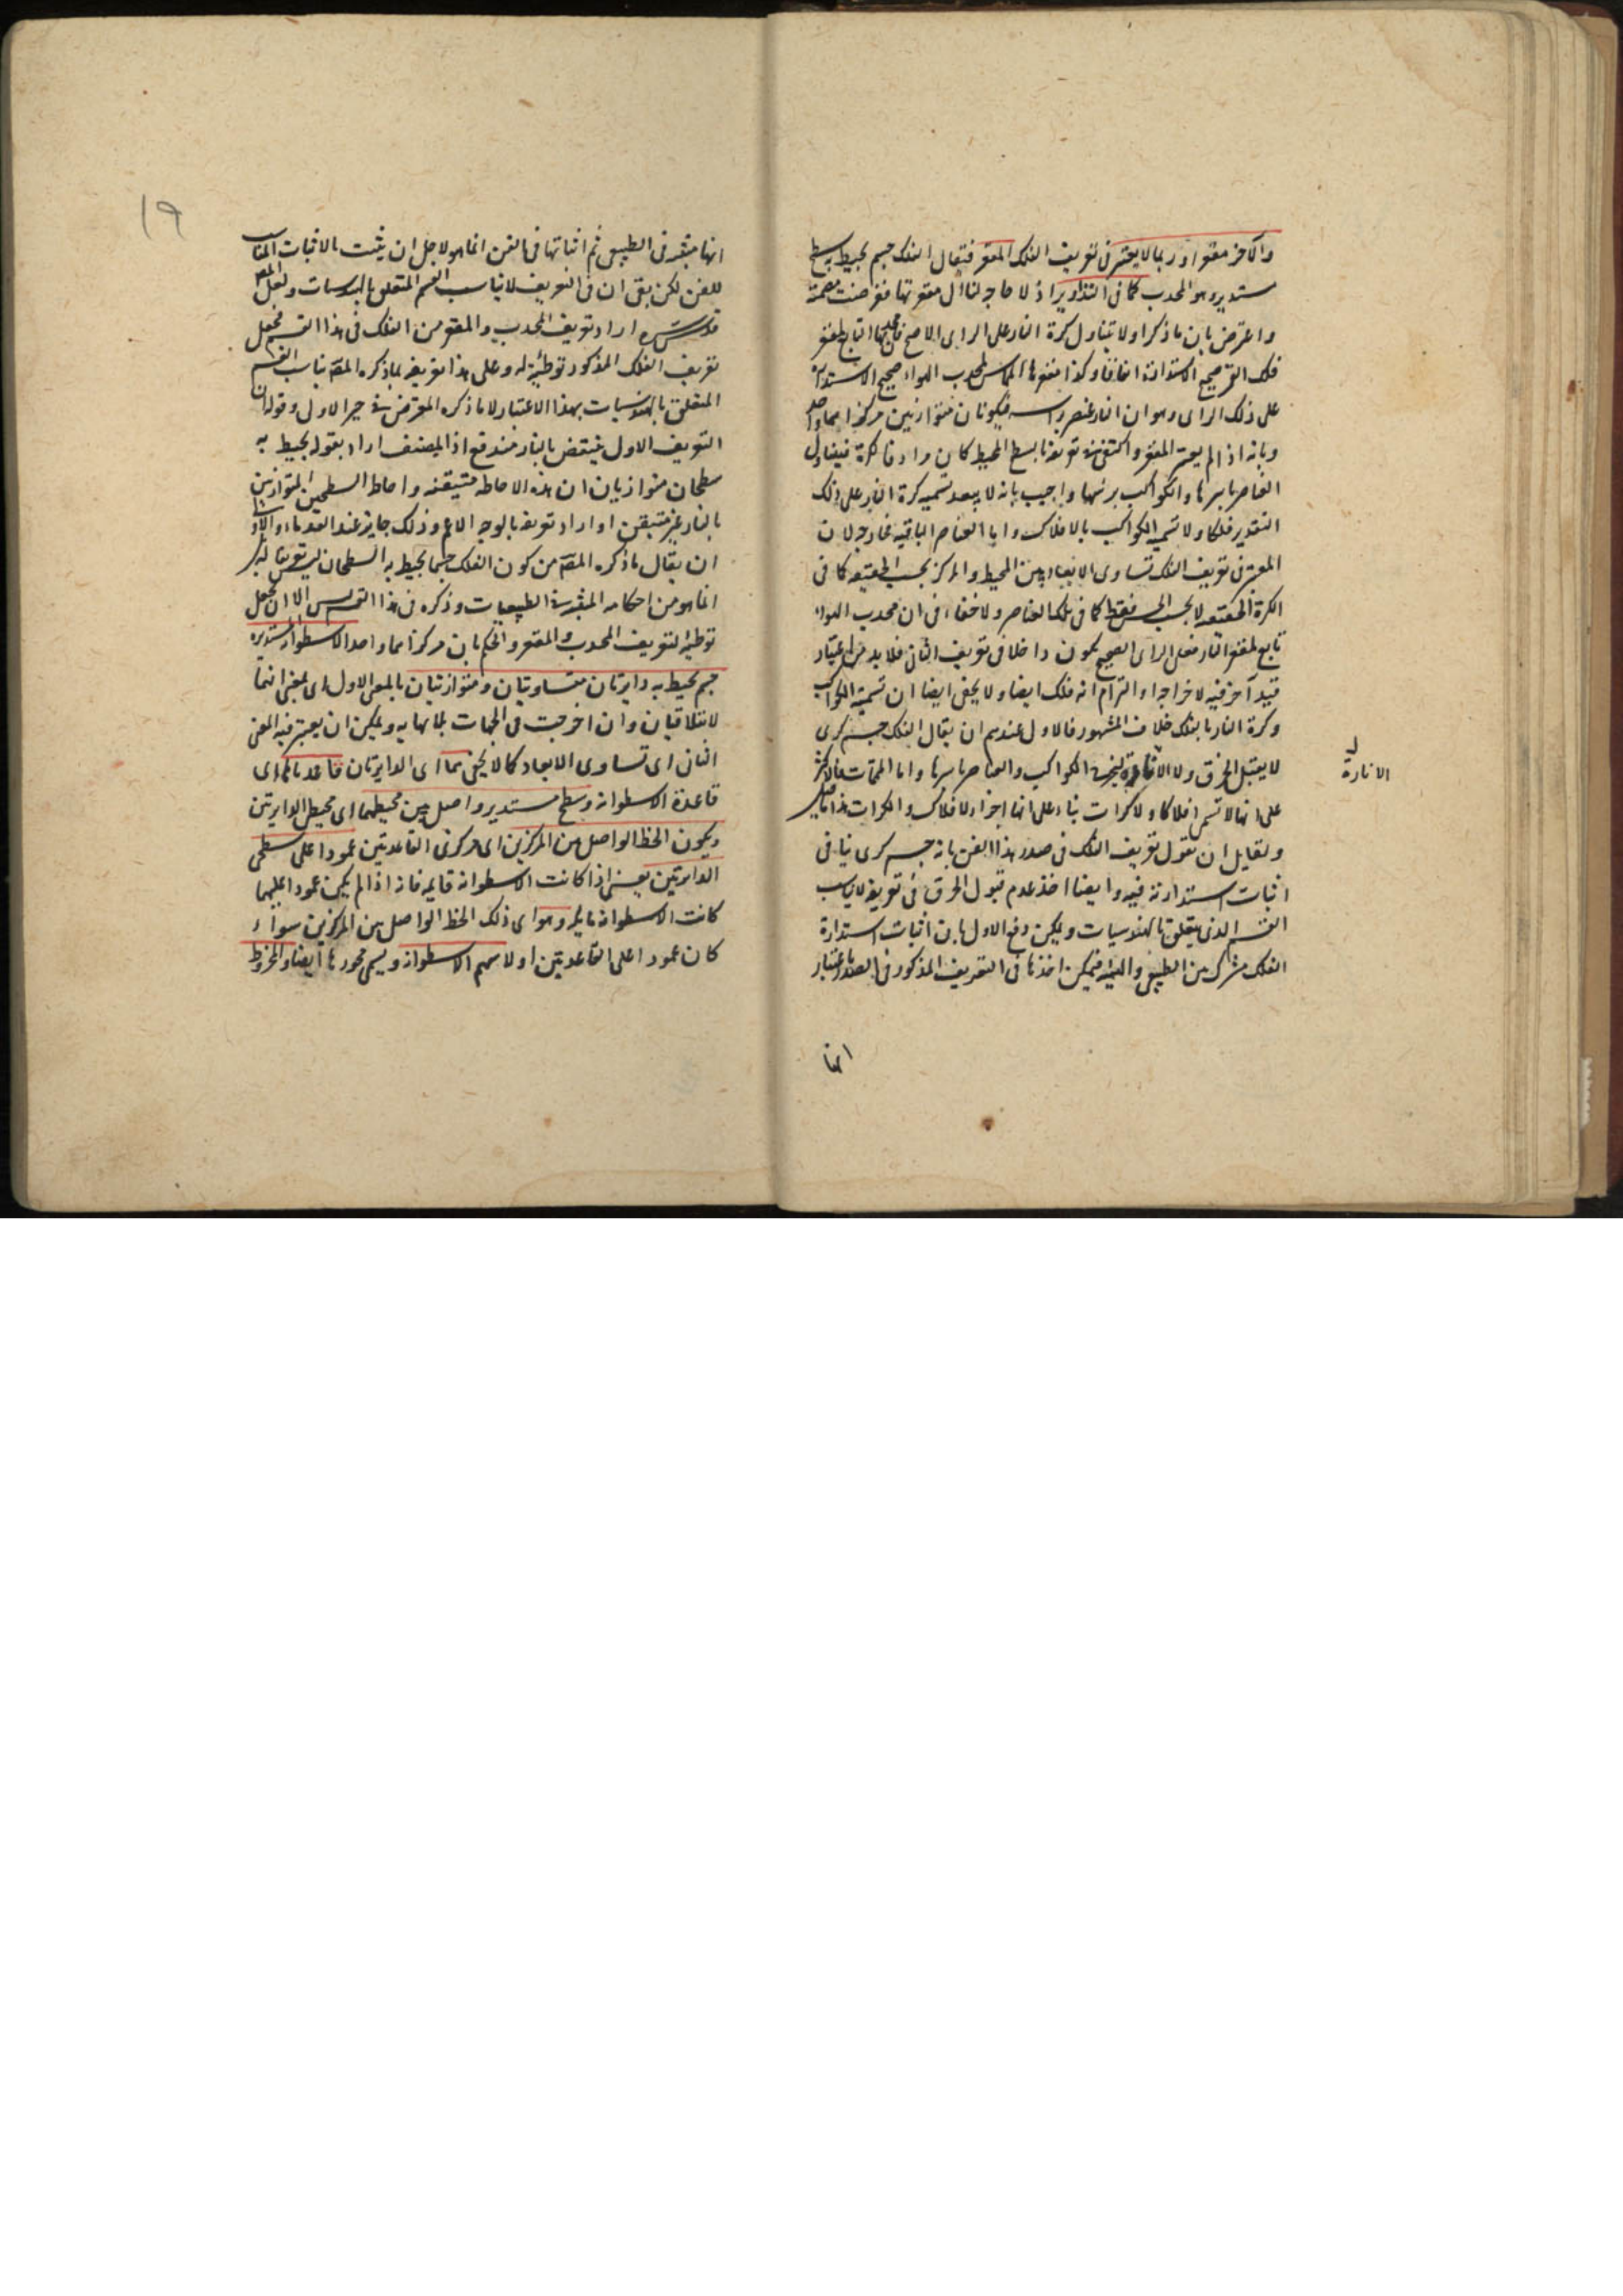 والآخر مقعرا وربما لا يعتبر فى تعريف الفلك المقعر فيقال الفلك جسم يحيط به سطح
مستدير وهو المحدب كما فى التداوير اذ لا حاجة لنا الى مقعرتها ففرضت مصمتة
واعترض بان ما ذكر اولا يتناول كرة النار على الراى الاصح فان محدبها التابع لمقعر
فلك القمر صحيح الاستدارة اتفاقا وكذا مقعرها المماس لمحدب الهواء صحيح الاستدارة
على ذلك الراى وهو ان النار عنصر براسه فيكونان متوازيين مركزاهما واحد
وبانه اذا لم يعتبر المقعر واكتفى فى تعريفه بالسطح المحيط كان مرادفا للكرة فيتناول
العناصر باسرها والكواكب برمتها واجيب بانه لا يبعد تسمية كرة النار على ذلك
التقدير فلكا ولا تسمية الكواكب بالافلاك واما العناصر الباقية فخارجة لان
المعتبر فى تعريف الفلك تساوى الابعاد بين المحيط والمركز بحسب الحقيقة كما فى
الكرة الحقيقية لا بحسب الحس فقط كما فى تلك العناصر ولا خفاء فى ان محدب الهواء
تابع لمقعر النار فعلى الراى الصحيح يكون داخلا فى تعريف الثانى فلا بد من اعتبار
قيد آخر فيه لاخراجه او التزام انه فلك ايضا ولا يخفى ايضا ان تسمية الكواكب
وكرة النار بالفلك خلاف المشهور فالاولى عندهم ان يقال الفلك جسم كرى
لا يقبل الخرق ولا الانارة ليخرج الكواكب والعناصر باسرها واما المتممات فالاكثر
الانارة
على انها لا تسمى افلاكا ولا كرات بناء على انها اجزاء لافلاك والكرات هذا
ولقايل ان يقول تعريف الفلك فى صدر هذا الفن بانه جسم كرى ينافى
اثبات استدارته فيه وايضا اخذ عدم قبول الخرق فى تعريفه لا يناسب
القسم الذى يتعلق بالهندسيات ويمكن دفع الاول بان اثبات استدارة
الفلك مشترك بين الطبيعى والهيئة فيمكن اخذها فى التعريف المذكور فى الصدر باعتبار
انها
١٩
انها مثبتة فى الطبيعى ثم اثباتها فى الفن انما هو لاجل ان يثبت بالاثبات المناسب
للفن لكن بقى ان فى التعريف لا يناسب القسم المتعلق بالهندسيات ولعل المص
قدس سره اراد تعريف المحدب والمقعر من الفلك فى هذا القسم فجعل
تعريف الفلك المذكور توطئة له وعلى هذا تعريفه بما ذكره المص يناسب القسم
المتعلق بالهندسيات بهذا الاعتبار لا ما ذكره المعترض فى حيز الاولى وقوله ان
التعريف الاول ينتقض بالنار مندفع اذ المصنف اراد بقوله يحيط به
سطحان متوازيان ان هذه الاحاطة متيقنة واحاطة السطحين المتوازيين
بالنار غير متيقن او اراد تعريفه بالوجه الاعم وذلك جايز عند القدماء والاولى
ان يقال ما ذكره المص من كون الفلك جسما يحيط به السطحان ليس تعريفا له بل
انما هو من احكامه المثبتة فى الطبيعيات وذكره فى هذا القسم ليس الا ان يجعل
توطئة لتعريف المحدب والمقعر والحكم بان مركزاهما واحد الاسطوانة المستديرة
جسم يحيط به دايرتان متساويتان ومتوازيتان بالمعنى الاول اى بمعنى انهما
لا يتلاقيان وان اخرجت فى الجهات لا نهاية ويمكن ان يعتبر فيه المعنى
الثانى اى تساوى الابعاد كما لا يخفى هما اى الدايرتان قاعدتاهما اى
قاعدة الاسطوانة وسطح مستدير واصل بين محيطيهما اى محيطى الدايرتين
ويكون الخط الواصل بين المركزين اى مركزى القاعدتين عمودا على سطحى
الدايرتين يعنى اذا كانت الاسطوانة قايمة فانه اذا لم يكن عمودا عليهما
كانت الاسطوانة مايلة وهو اى ذلك الخط الواصل بين المركزين سواء
كان عمودا على القاعدتين اولا سهم الاسطوانة ويسمى محورها ايضا والمخروط